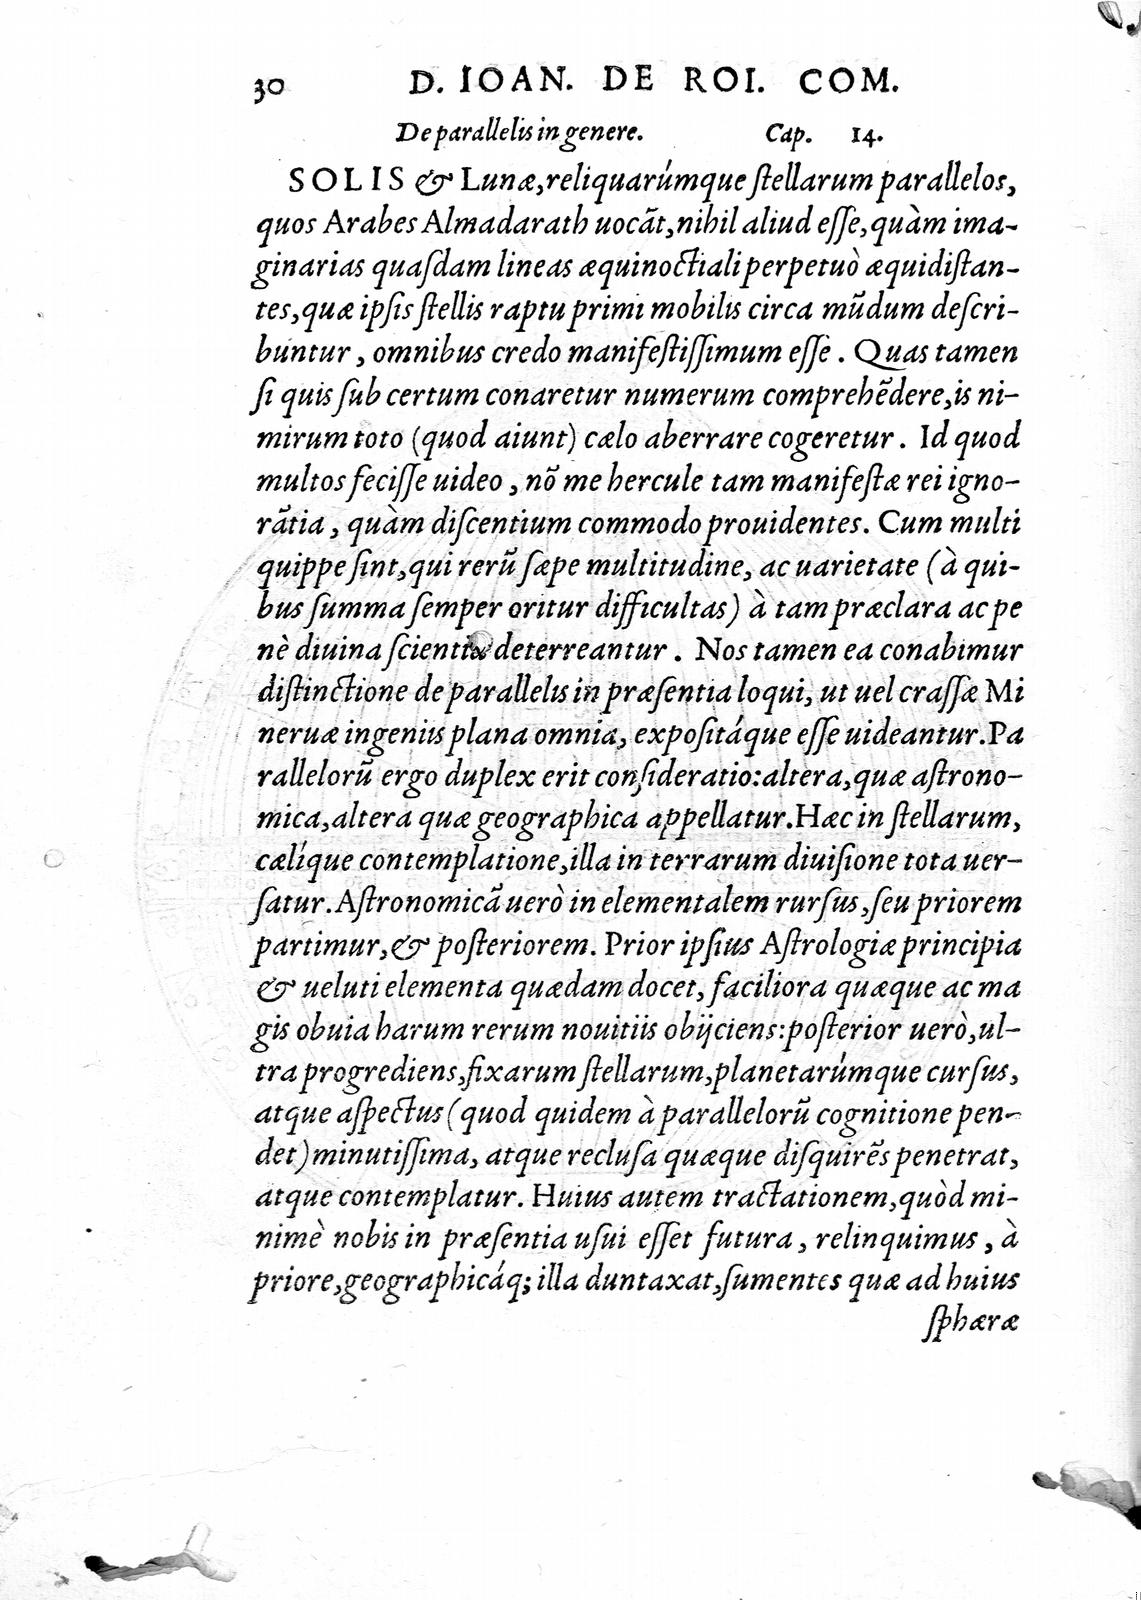 30 D. IOAN. DE ROI. COM.
De parallelis in genere. Cap. 14.
SOLIS & Lunæ, reliquarúmque ſtellarum parallelos,
quos Arabes Almadarath uocãt, nihil aliud eſſe, quàm ima-
ginarias quaſdam lineas æquinoctiali perpetuò æquidiſtan-
tes, quæ ipſis ſtellis raptu primi mobilis circa mũdum deſcri-
buntur, omnibus credo manifeſtiſſimum eſſe. Quas tamen
ſi quis ſub certum conaretur numerum comprehẽdere, is ni-
mirum toto (quod aiunt) cælo aberrare cogeretur. Id quod
multos feciſſe uideo, nõ me hercule tam manifeſtæ rei igno-
rãtia, quàm diſcentium commodo prouidentes. Cum multi
quippe ſint, qui rerũ ſæpe multitudine, ac uarietate (à qui-
bus ſumma ſemper oritur difficultas) à tam præclara ac pe
nè diuina ſcientia deterreantur. Nos tamen ea conabimur
diſtinctione de parallelis in præſentia loqui, ut uel craſſæ Mi
neruæ ingeniis plana omnia, expoſitáque eſſe uideantur. Pa
rallelorũ ergo duplex erit conſideratio: altera, quæ aſtrono-
mica, altera quæ geographica appellatur. Hæc in ſtellarum,
cælíque contemplatione, illa in terrarum diuiſione tota uer-
ſatur. Aſtronomicã uerò in elementalem rurſus, ſeu priorem
partimur, & poſteriorem. Prior ipſius Aſtrologiæ principia
& ueluti elementa quædam docet, faciliora quæque ac ma
gis obuia harum rerum nouitiis obijciens: poſterior uerò, ul-
tra progrediens, fixarum ſtellarum, planetarúmque curſus,
atque aſpectus (quod quidem à parallelorũ cognitione pen-
det) minutiſſima, atque recluſa quæque diſquirẽs penetrat,
atque contemplatur. Huius autem tractationem, quòd mi-
nimè nobis in præſentia uſui eſſet futura, relinquimus, à
priore, geographicáq; illa duntaxat, ſumentes quæ ad huius
ſphæræ